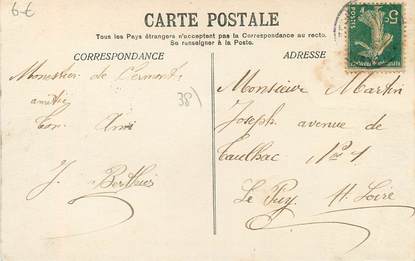 6-€
CARTE POSTALE
Tous les Pays étrangers n'acceptent pas la Correspondance au recto.
Se renseigner à la Poste.
CORRESPONDANCE
ADRESSE
5c
POSTES
Monestier de Clermont
amitiés
Ton Ami
J. Berthier
38)
Monsieur Martin
Joseph avenue de
Taulhac
Le Puy Hte Loire